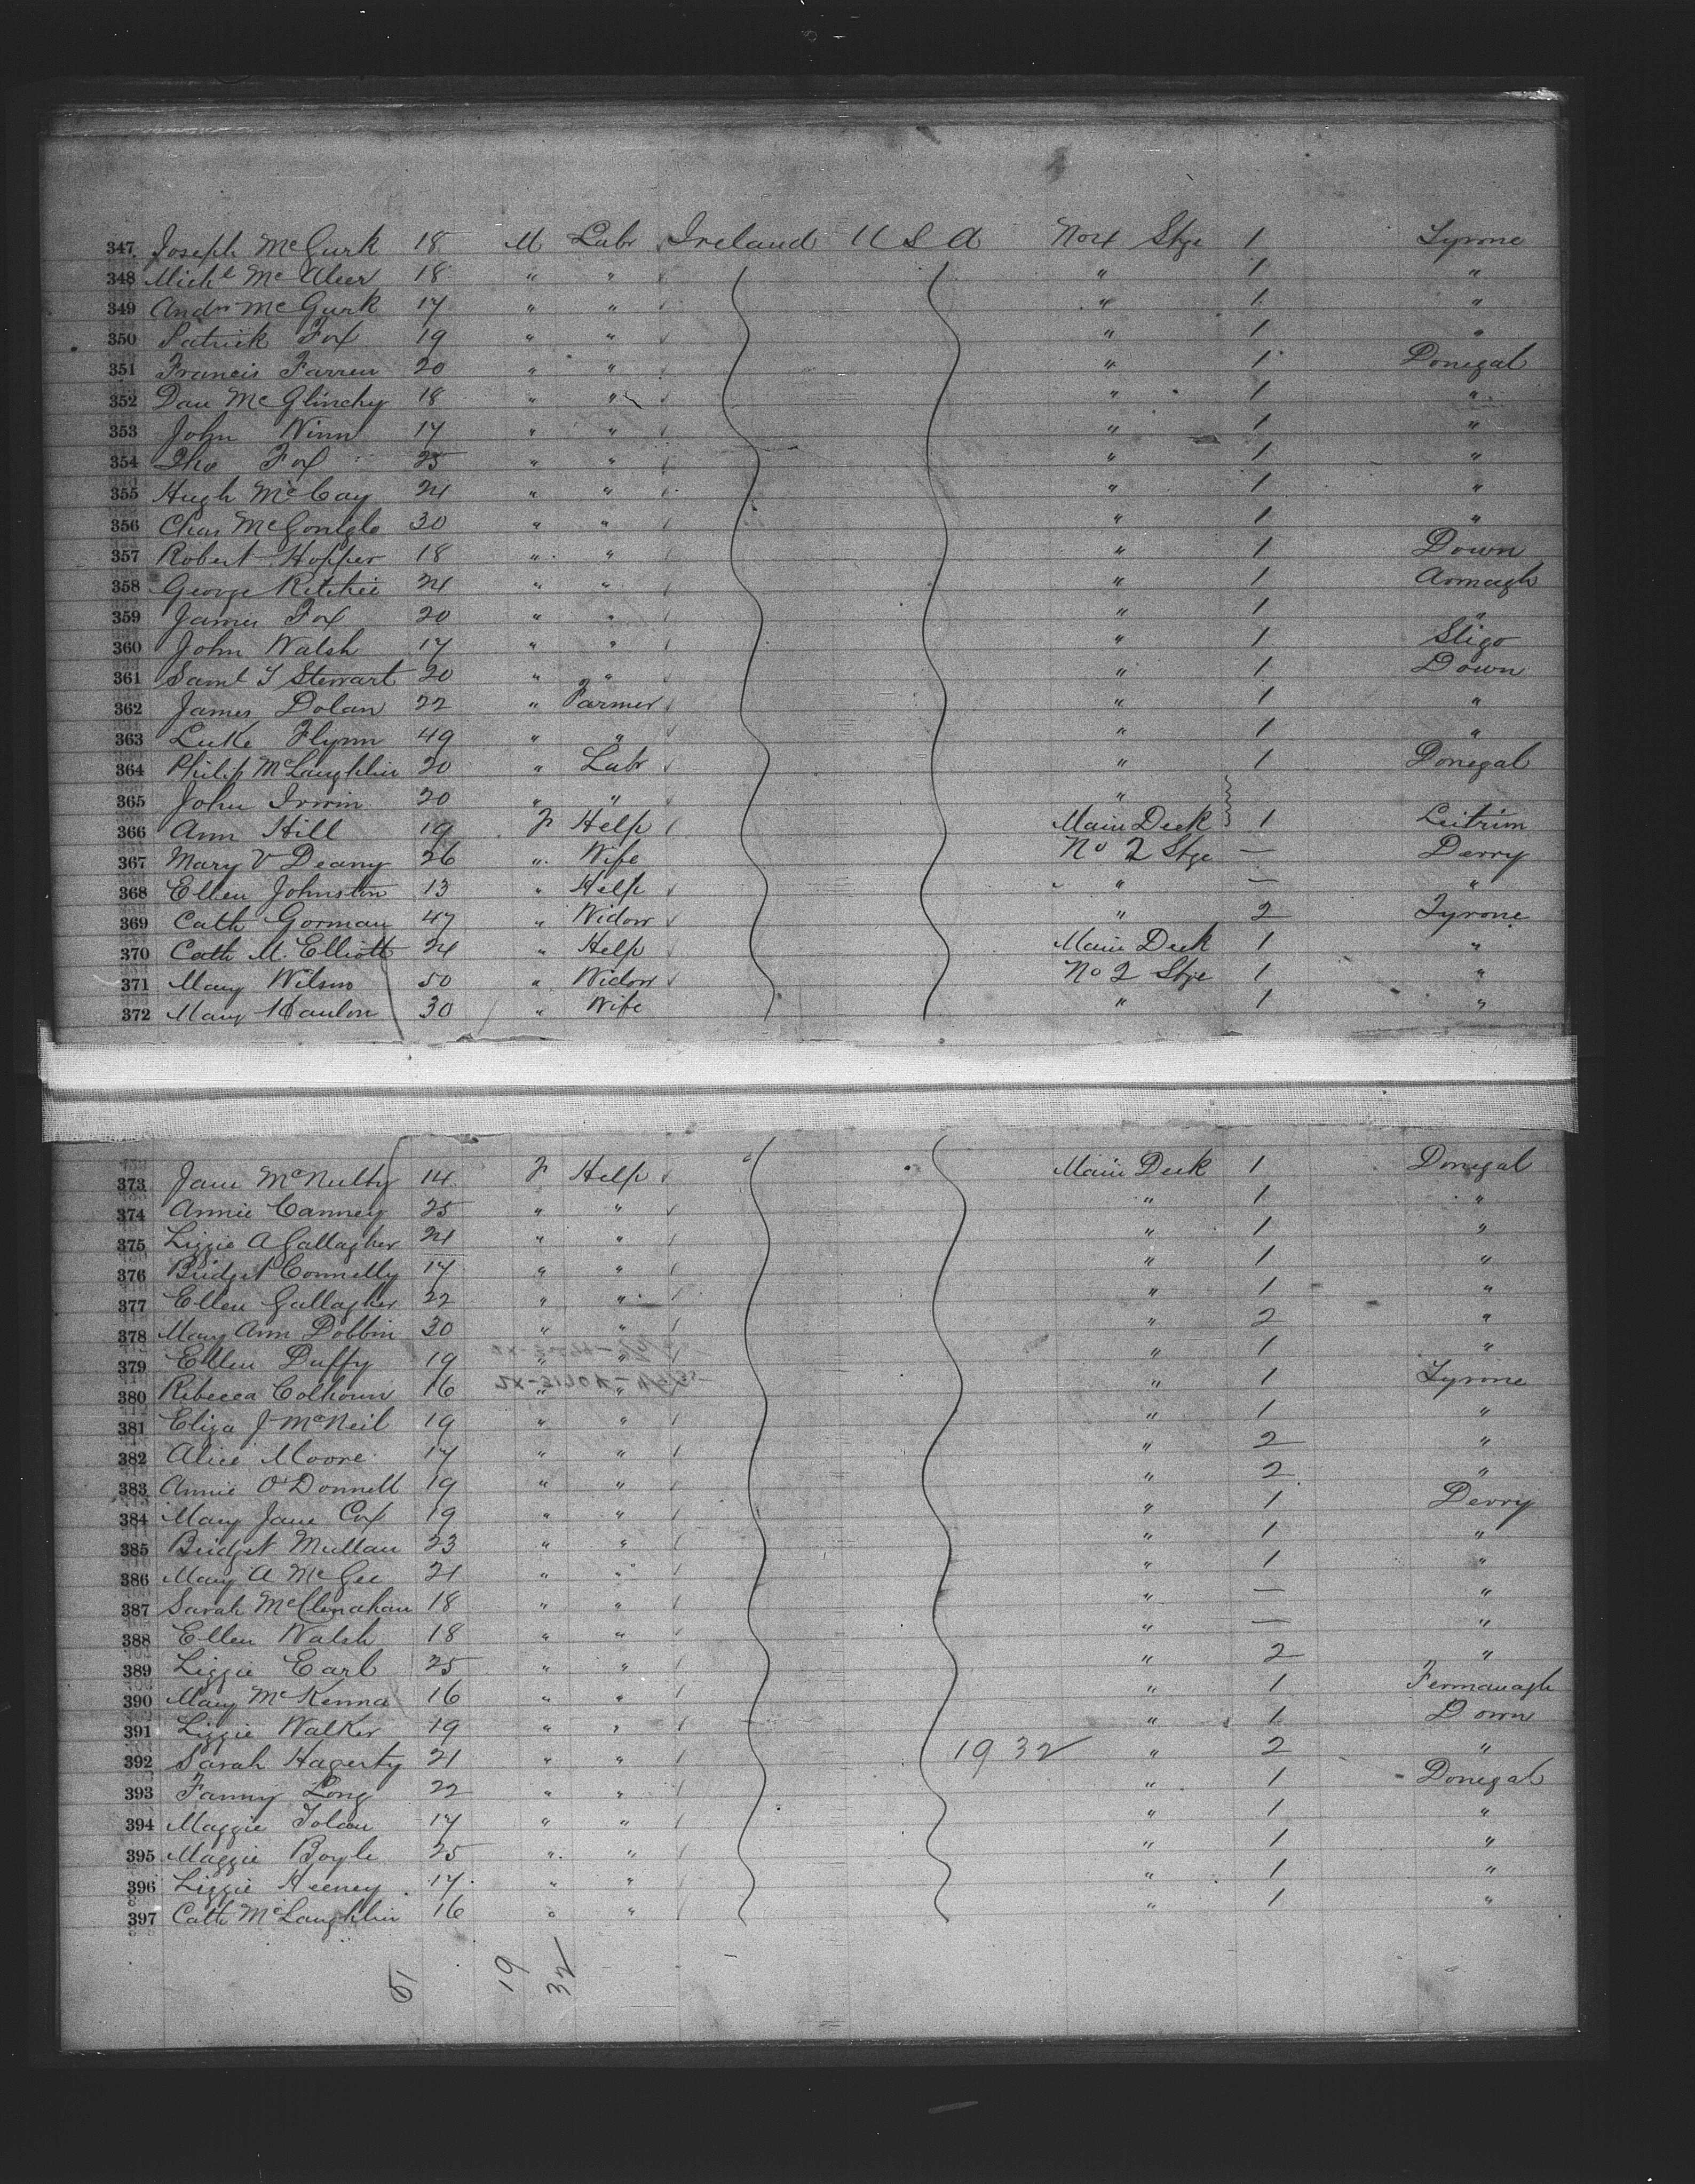 347 Joseph McGurk 18 M Labr Ireland U S A No 4 Stge 1 Tyrone
348 Michl McAleer 18 " " " 1 "
349 Andw McGurk 17 " " " 1 "
350 Patrick Fox 19 " " " 1 "
351 Francis Farren 20 " " " 1 Donegal
352 Dan McGlinchy 18 " " " 1 "
353 John Winn 17 " " " 1 "
354 Tho Fox 25 " " " 1 "
355 Hugh McCay 24 " " " 1 "
356 Chas McGonigle 30 " " " 1 "
357 Robert Hopper 18 " " " 1 Down
358 George Ritchie 24 " " " 1 Armagh
359 James Fox 20 " " " 1 "
360 John Walsh 17 " " " 1 Sligo
361 Saml J Stewart 20 " " " 1 Down
362 James Dolan 22 " Farmer " 1 "
363 Luke Flynn 49 " " " 1 "
364 Philip McLaughlin 20 " Labr " 1 Donegal
365 John Irwin 20 " " "
366 Ann Hill 19 F Help Main Deck 1 Leitrim
367 Mary V Deany 26 " Wife No 2 Stge — Derry
368 Ellen Johnston 13 " Help " — "
369 Cath Gorman 47 " Widow " 2 Tyrone
370 Cath M. Elliott 24 " Help Main Deck 1 "
371 Mary Wilson 50 " Widow No 2 Stge 1 "
372 Mary Hanlon 30 " Wife " 1 "
373 Jane McNulty 14 F Help Main Deck 1 Donegal
374 Annie Canney 25 " " " 1 "
375 Lizzie A Gallagher 24 " " " 1 "
376 Bridget Connelly 17 " " " 1 "
377 Ellen Gallagher 22 " " " 1 "
378 Mary Ann Dobbin 30 " " " 2 "
379 Ellen Duffy 19 " " " 1 "
380 Rebecca Colhoun 16 " " " 1 Tyrone
381 Eliza J McNeil 19 " " " 1 "
382 Alice Moore 17 " " " 2 "
383 Annie O'Donnell 19 " " " 2 "
384 Mary Jane Cox 19 " " " 1 Derry
385 Bridget Mullan 23 " " " 1 "
386 Mary A McGee 21 " " " 1 "
387 Sarah McClenahan 18 " " " — "
388 Ellen Walsh 18 " " " — "
389 Lizzie Earl 25 " " " 2 "
390 Mary McKenna 16 " " " 1 Fermanagh
391 Lizzie Walker 19 " " " 1 Down
392 Sarah Hagerty 21 " " 19 32 " 2 "
393 Fanny Long 22 " " " 1 Donegal
394 Maggie Tolan 17 " " " 1 "
395 Maggie Boyle 25 " " " 1 "
396 Lizzie Heeney 17 " " " 1 "
397 Cath McLaughlin 16 " " " 1 "
51 19 32